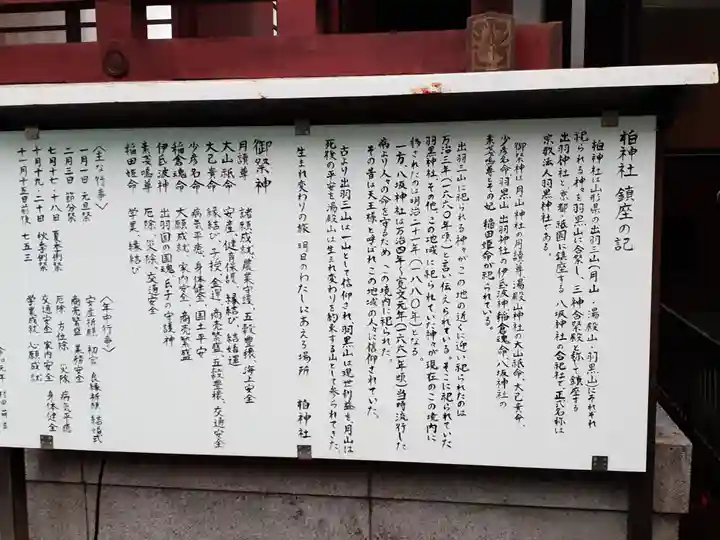 柏神社 鎮座の記
柏神社は山形県の出羽三山(月山・湯殿山・羽黒山)にそれぞれ
祀られる神々を羽黒山に合祭し、三神合祭殿と称して鎮座する
出羽神社と京都・祇園に鎮座する八坂神社の合祀社で正式名称は
宗教法人羽黒神社である。
御祭神は月山神社の月読尊、湯殿山神社の大山祇命、大己貴命、
少彦名命、羽黒山 出羽神社の伊氐波神、稲倉魂命、八坂神社の
素戔嗚尊とその妃 稲田姫命が祀られている。
出羽三山に祀られる神々がこの地の近くに迎い祀られたのは
万治三年(一六六〇年頃)と言い伝えられている。そこに祀られていた
羽黒神社、その他この地域に祀られていた神々が現在のこの境内に
移されたのは明治二十一年(一八八〇年)となる。
一方、八坂神社は万治四年〜寛文元年(一六六一年頃)当時流行した
病より人々の命を守るため この境内に祀られた。
その昔は天王様と呼ばれ この地域の人々に信仰されていた。
古より出羽三山は一山として信仰され 羽黒山は現世利益を 月山は
死後の平安を 湯殿山は生まれ変わりを約束する山として参られてきた。
生まれ変わりの旅 明日のわたしにあえる場所 柏神社
御祭神
月読尊 諸願成就、農業守護、五穀豊穣、海上安全
大山祇命 安産、健育保護、縁結び、結婚運
大己貴命 縁結び、子授、金運、商売繁盛、五穀豊穣、交通安全
少彦名命 病気平癒、身体健全、国土平安
稲倉魂命 大願成就、家内安全、商売繁盛
伊氐波神 出羽国の国魂、氏子の守護神
素戔嗚尊 厄除、災除、交通安全
稲田姫命 学業、縁結び
〈主な行事〉
一月一日 元旦祭
二月三日 節分祭
七月十七、十八日 夏季例祭
十月十九、二十日 秋季例祭
十一月十五日前後 七五三
〈年中行事〉
安産祈願 初宮 良縁祈願 結婚式
商売繁盛 業務安全
厄除 方位除 災除 病気平癒
交通安全 家内安全 身体健全
学業成就 心願成就